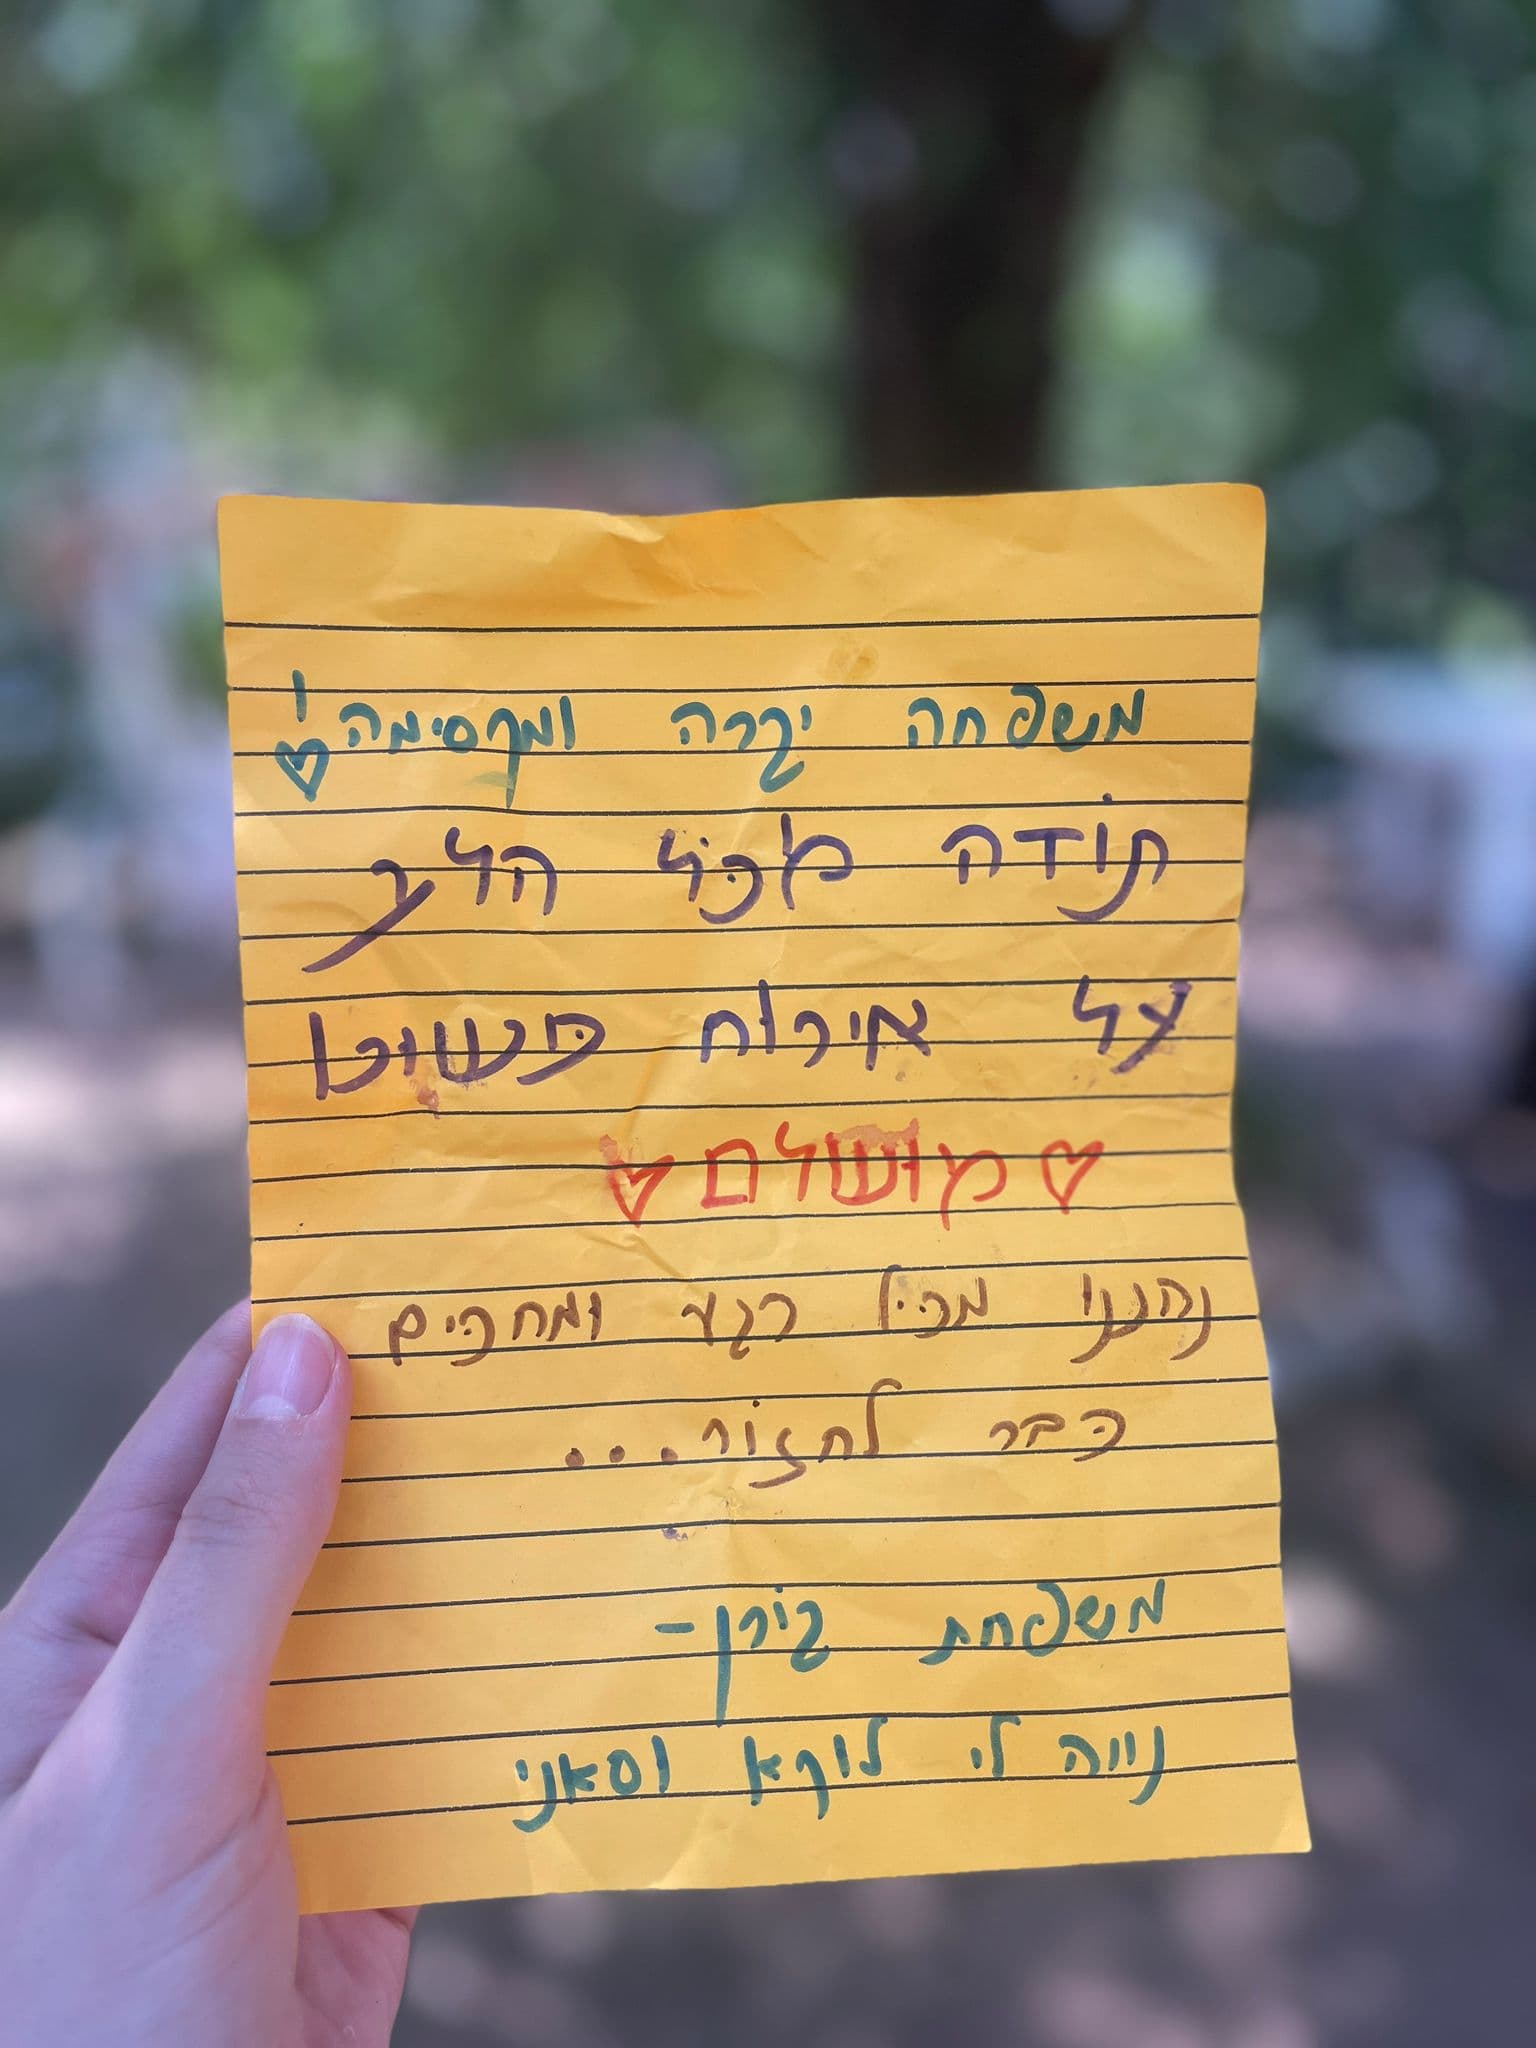 משפחה יקרה ומקסימה!
תודה מכל הלב
על אירוח פשוט
♡ מושלם ♡
נהננו מכל רגע ומחכים
כבר לחזור...
משפחת גורן-
נווה לי לוקא וסאני